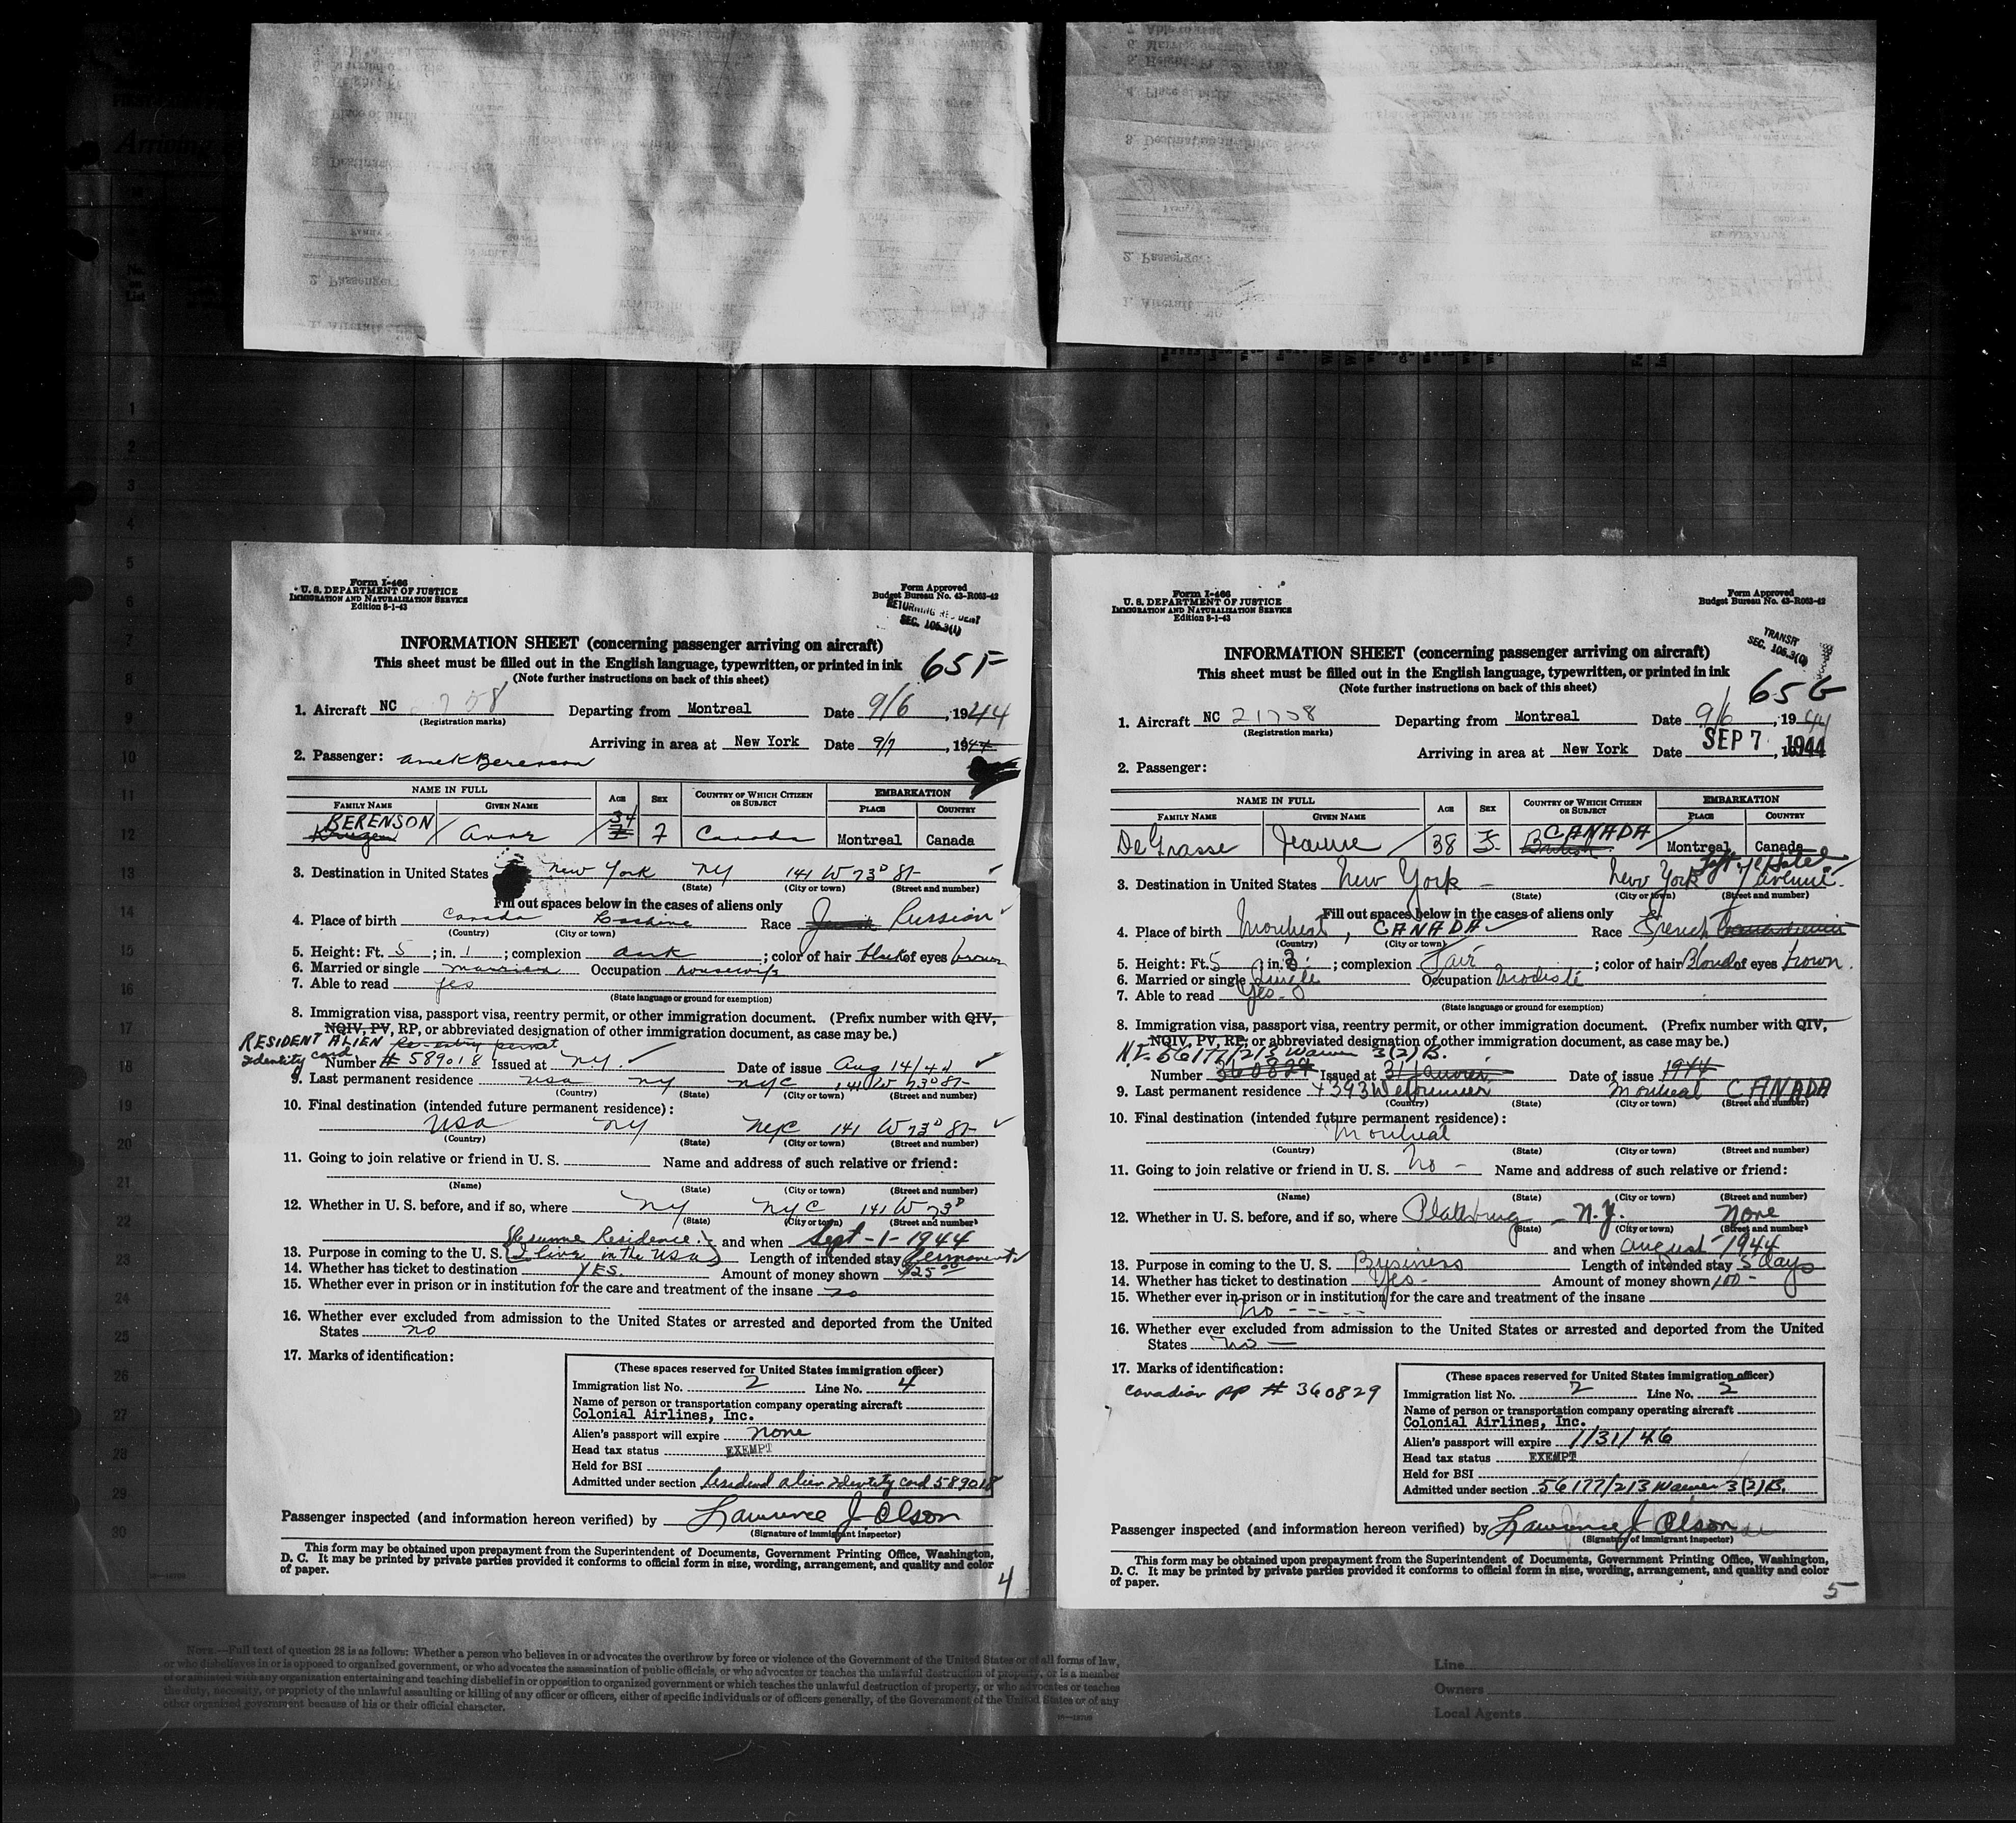 Form I-466
U. S. DEPARTMENT OF JUSTICE
IMMIGRATION AND NATURALIZATION SERVICE
Edition 8-1-43
Form Approved
Budget Bureau No. 43-R063-42
RETURNING RESIDENT
SEC. 106.3(1)
INFORMATION SHEET (concerning passenger arriving on aircraft)
This sheet must be filled out in the English language, typewritten, or printed in ink
65 F
(Note further instructions on back of this sheet)
1. Aircraft NC Departing from Montreal Date 9/6, 1944
(Registration marks)
Arriving in area at New York Date 9/7, 1944
2. Passenger: Berenson
NAME IN FULL AGE SEX COUNTRY OF WHICH CITIZEN OR SUBJECT EMBARKATION
FAMILY NAME GIVEN NAME PLACE COUNTRY
BERENSON 34 F Canada Montreal Canada
3. Destination in United States New York NY 141 W 73D St
(State) (City or town) (Street and number)
Fill out spaces below in the cases of aliens only
4. Place of birth Canada Race Russian
(Country) (City or town)
5. Height: Ft. 5; in. 1; complexion dark; color of hair black of eyes brown
6. Married or single married Occupation housewife
7. Able to read yes
(State language or ground for exemption)
8. Immigration visa, passport visa, reentry permit, or other immigration document. (Prefix number with QIV,
NQIV, PV, RP, or abbreviated designation of other immigration document, as case may be.)
RESIDENT ALIEN Re-entry permit
Identity card Number # 589018 Issued at N.Y. Date of issue Aug 14/44
9. Last permanent residence USA NY NYC 141 W 73D St
(Country) (State) (City or town) (Street and number)
10. Final destination (intended future permanent residence):
USA NY NYC 141 W 73D St
(Country) (State) (City or town) (Street and number)
11. Going to join relative or friend in U. S. Name and address of such relative or friend:
(Name) (State) (City or town) (Street and number)
12. Whether in U. S. before, and if so, where NY NYC 141 W 73D
(State) (City or town) (Street and number)
and when Sept-1-1944
Resume Residence.
13. Purpose in coming to the U. S. (I live in the USA) Length of intended stay Permanent
14. Whether has ticket to destination YES. Amount of money shown $25.00
15. Whether ever in prison or in institution for the care and treatment of the insane no
16. Whether ever excluded from admission to the United States or arrested and deported from the United
States no
17. Marks of identification:
(These spaces reserved for United States immigration officer)
Immigration list No. 2 Line No. 4
Name of person or transportation company operating aircraft
Colonial Airlines, Inc.
Alien's passport will expire none
Head tax status EXEMPT
Held for BSI
Admitted under section Resident alien Identity card 589018
Passenger inspected (and information hereon verified) by Lawrence J. Olson
(Signature of immigrant inspector)
This form may be obtained upon prepayment from the Superintendent of Documents, Government Printing Office, Washington,
D. C. It may be printed by private parties provided it conforms to official form in size, wording, arrangement, and quality and color
of paper.
4
Form I-466
U. S. DEPARTMENT OF JUSTICE
IMMIGRATION AND NATURALIZATION SERVICE
Edition 8-1-43
Form Approved
Budget Bureau No. 43-R063-42
TRANSIT
SEC. 106.3(C)
INFORMATION SHEET (concerning passenger arriving on aircraft)
This sheet must be filled out in the English language, typewritten, or printed in ink
65 G
(Note further instructions on back of this sheet)
1. Aircraft NC 21758 Departing from Montreal Date 9/6, 1944
(Registration marks)
Arriving in area at New York Date SEP 7 1944
2. Passenger:
NAME IN FULL AGE SEX COUNTRY OF WHICH CITIZEN OR SUBJECT EMBARKATION
FAMILY NAME GIVEN NAME PLACE COUNTRY
CANADA
De Grasse Jeanne 38 F British Montreal Canada
Taft Hotel
3. Destination in United States New York - New York 7 avenue
(State) (City or town) (Street and number)
Fill out spaces below in the cases of aliens only
4. Place of birth Montreal, CANADA Race French
(Country) (City or town)
5. Height: Ft. 5 in. 3; complexion Fair; color of hair Blond of eyes brown.
6. Married or single Single Occupation Modiste
7. Able to read Yes
(State language or ground for exemption)
8. Immigration visa, passport visa, reentry permit, or other immigration document. (Prefix number with QIV,
NQIV, PV, RP, or abbreviated designation of other immigration document, as case may be.)
56177/213 Waiver 3(2)B.
Number 360829 Issued at 31 janvier Date of issue 1944
9. Last permanent residence 4393 Delorimier Montreal CANADA
(Country) (State) (City or town) (Street and number)
10. Final destination (intended future permanent residence):
Montreal
(Country) (State) (City or town) (Street and number)
11. Going to join relative or friend in U. S. No - Name and address of such relative or friend:
(Name) (State) (City or town) (Street and number)
12. Whether in U. S. before, and if so, where Plattsburg - N.Y. None
(State) (City or town) (Street and number)
and when august 1944
13. Purpose in coming to the U. S. Business Length of intended stay 5 days
14. Whether has ticket to destination Yes - Amount of money shown 100 -
15. Whether ever in prison or in institution for the care and treatment of the insane
No - - - -
16. Whether ever excluded from admission to the United States or arrested and deported from the United
States No -
17. Marks of identification:
Canadian PP # 360829
(These spaces reserved for United States immigration officer)
Immigration list No. 2 Line No. 2
Name of person or transportation company operating aircraft
Colonial Airlines, Inc.
Alien's passport will expire 1/31/46
Head tax status EXEMPT
Held for BSI
Admitted under section 56177/213 Waiver 3(2)B.
Passenger inspected (and information hereon verified) by Lawrence J. Olson
(Signature of immigrant inspector)
This form may be obtained upon prepayment from the Superintendent of Documents, Government Printing Office, Washington,
D. C. It may be printed by private parties provided it conforms to official form in size, wording, arrangement, and quality and color
of paper.
5
NOTE.—Full text of question 28 is as follows: Whether a person who believes in or advocates the overthrow by force or violence of the Government of the United States or of all forms of law,
or who disbelieves in or is opposed to organized government, or who advocates the assassination of public officials, or who advocates or teaches the unlawful destruction of property, or is a member
of or affiliated with any organization entertaining and teaching disbelief in or opposition to organized government or which teaches the unlawful destruction of property, or who advocates or teaches
the duty, necessity, or propriety of the unlawful assaulting or killing of any officer or officers, either of specific individuals or of officers generally, of the Government of the United States or of any
other organized government because of his or their official character.
Line
Owners
Local Agents